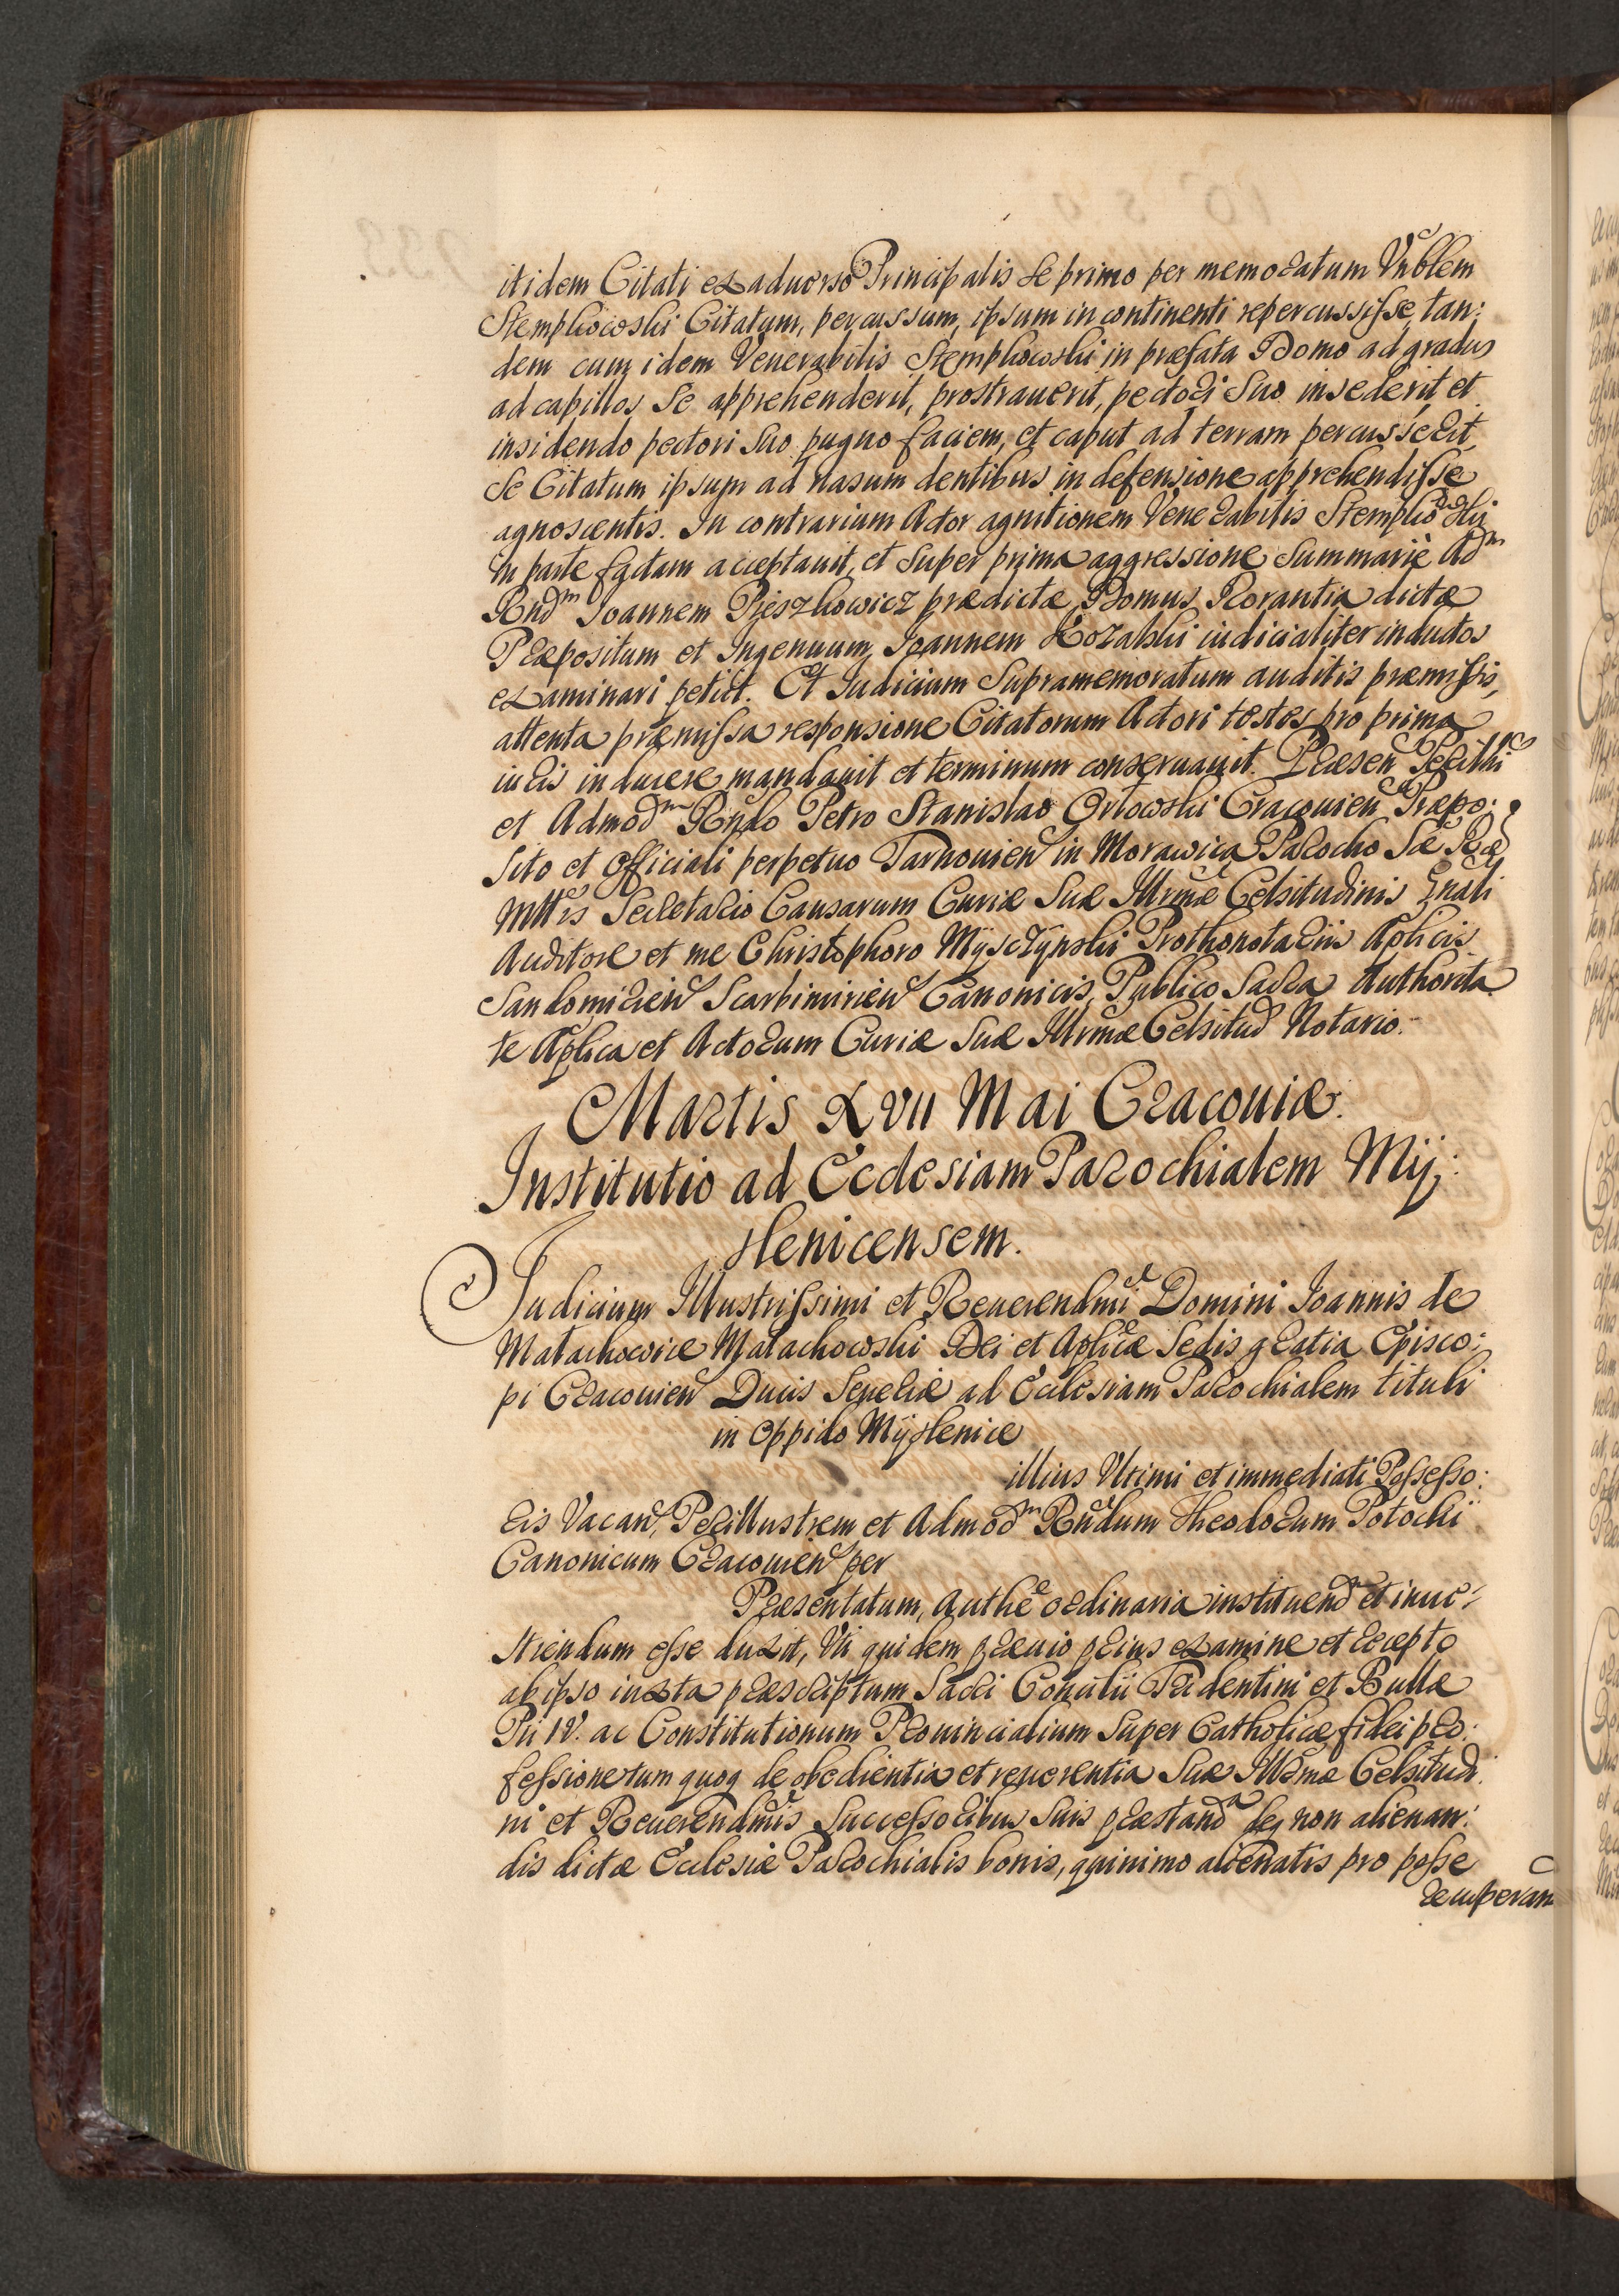 itidem Citati ex aduerso Principalis se primo per memoratum Vnblem
Stempkowski Citatum, percussum, ipsum in continenti repercussisse, tan:
dem cum idem Venerabilis Stempkowski in præfata Domo ad gradus
ad capillos se apprehenderit, prostrauerit, pectori suo insederit et
insidendo pectori suo pugno faciem, et caput ad terram percusserit
se Citatum ipsum ad nasum dentibus in defensione apprehendisse
agnoscentis. In contrarium Actor agnitionem Venerabilis Stempkowski
in parte factam acceptauit, et super prima aggressione summarie Adm
Rndm Joannem Pieszkowicz prædictæ Domus Rorantia dictæ
Præpositum et Ingenuum Joannem Kozalski iudicialiter inductos
examinari petiit. Et Iudicium Supramemoratum auditis præmissis,
attenta præmissa responsione Citatorum Actori testes pro prima
iuris inducere mandauit et terminum conseruauit. Præsen Perillri
et Admodm Rndo Petro Stanislao Orlowski Cracouien Præpo:
sito et Officiali perpetuo Tarnouien in Morawica Parocho Sæ Ræ
Mttis Secretario Causarum Curiæ Suæ Illrmæ Celsitudinis Gnali
Auditore et me Christophoro Mysczynski Prothonotariis Aplicis
Sandomirien Scarbimirien Canonicis, Publico Sacra Authorita
te Aplica et Actorum Curiæ Suæ Illrmæ Celsitud Notario.
Martis Xvii Mai Cracouiæ.
Institutio ad Ecclesiam Parochialem Mij:
slenicensem.
Iudicium Illustrissimi et Reuerendmi Domini Joannis de
Malachowice Malachowski Dei et Aplicæ Sedis gratia Episco:
pi Cracouien Ducis Seueriæ ad Ecclesiam Parochialem tituli
in Oppido Mijslenice
illius Vltimi et immediati Possesso:
ris Vacan, Perillustrem et Admodm Rndum Theodorum Potocki
Canonicum Cracouien per
Præsentatum, Authe ordinaria instituend et inue:
stiendum esse duxit, Vti quidem præuio prius examine et recepto
ab ipso iuxta præscriptum Sacri Concilii Tridentini et Bullæ
Pii IV. ac Constitutionum Prouincialium super Catholicæ fidei pro:
fessione tum quoq de obedientia et reuerentia Suæ Illrmæ Celsitudi
ni et Reuerendmis Successoribus suis præstand deq non alienan:
dis dictæ Ecclesiæ Parochialis bonis, quinimo alienatis pro posse
recuperan